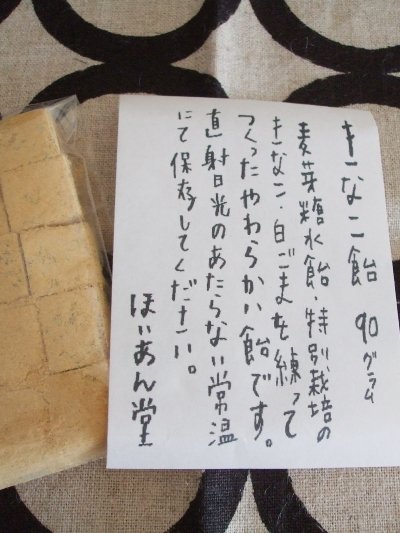 きなこ飴 90グラム
麦芽糖水飴・特別栽培の
きなこ・白ごまを練って
つくったやわらかい飴です。
直射日光のあたらない常温
にて保存してください。
ほぃあん堂